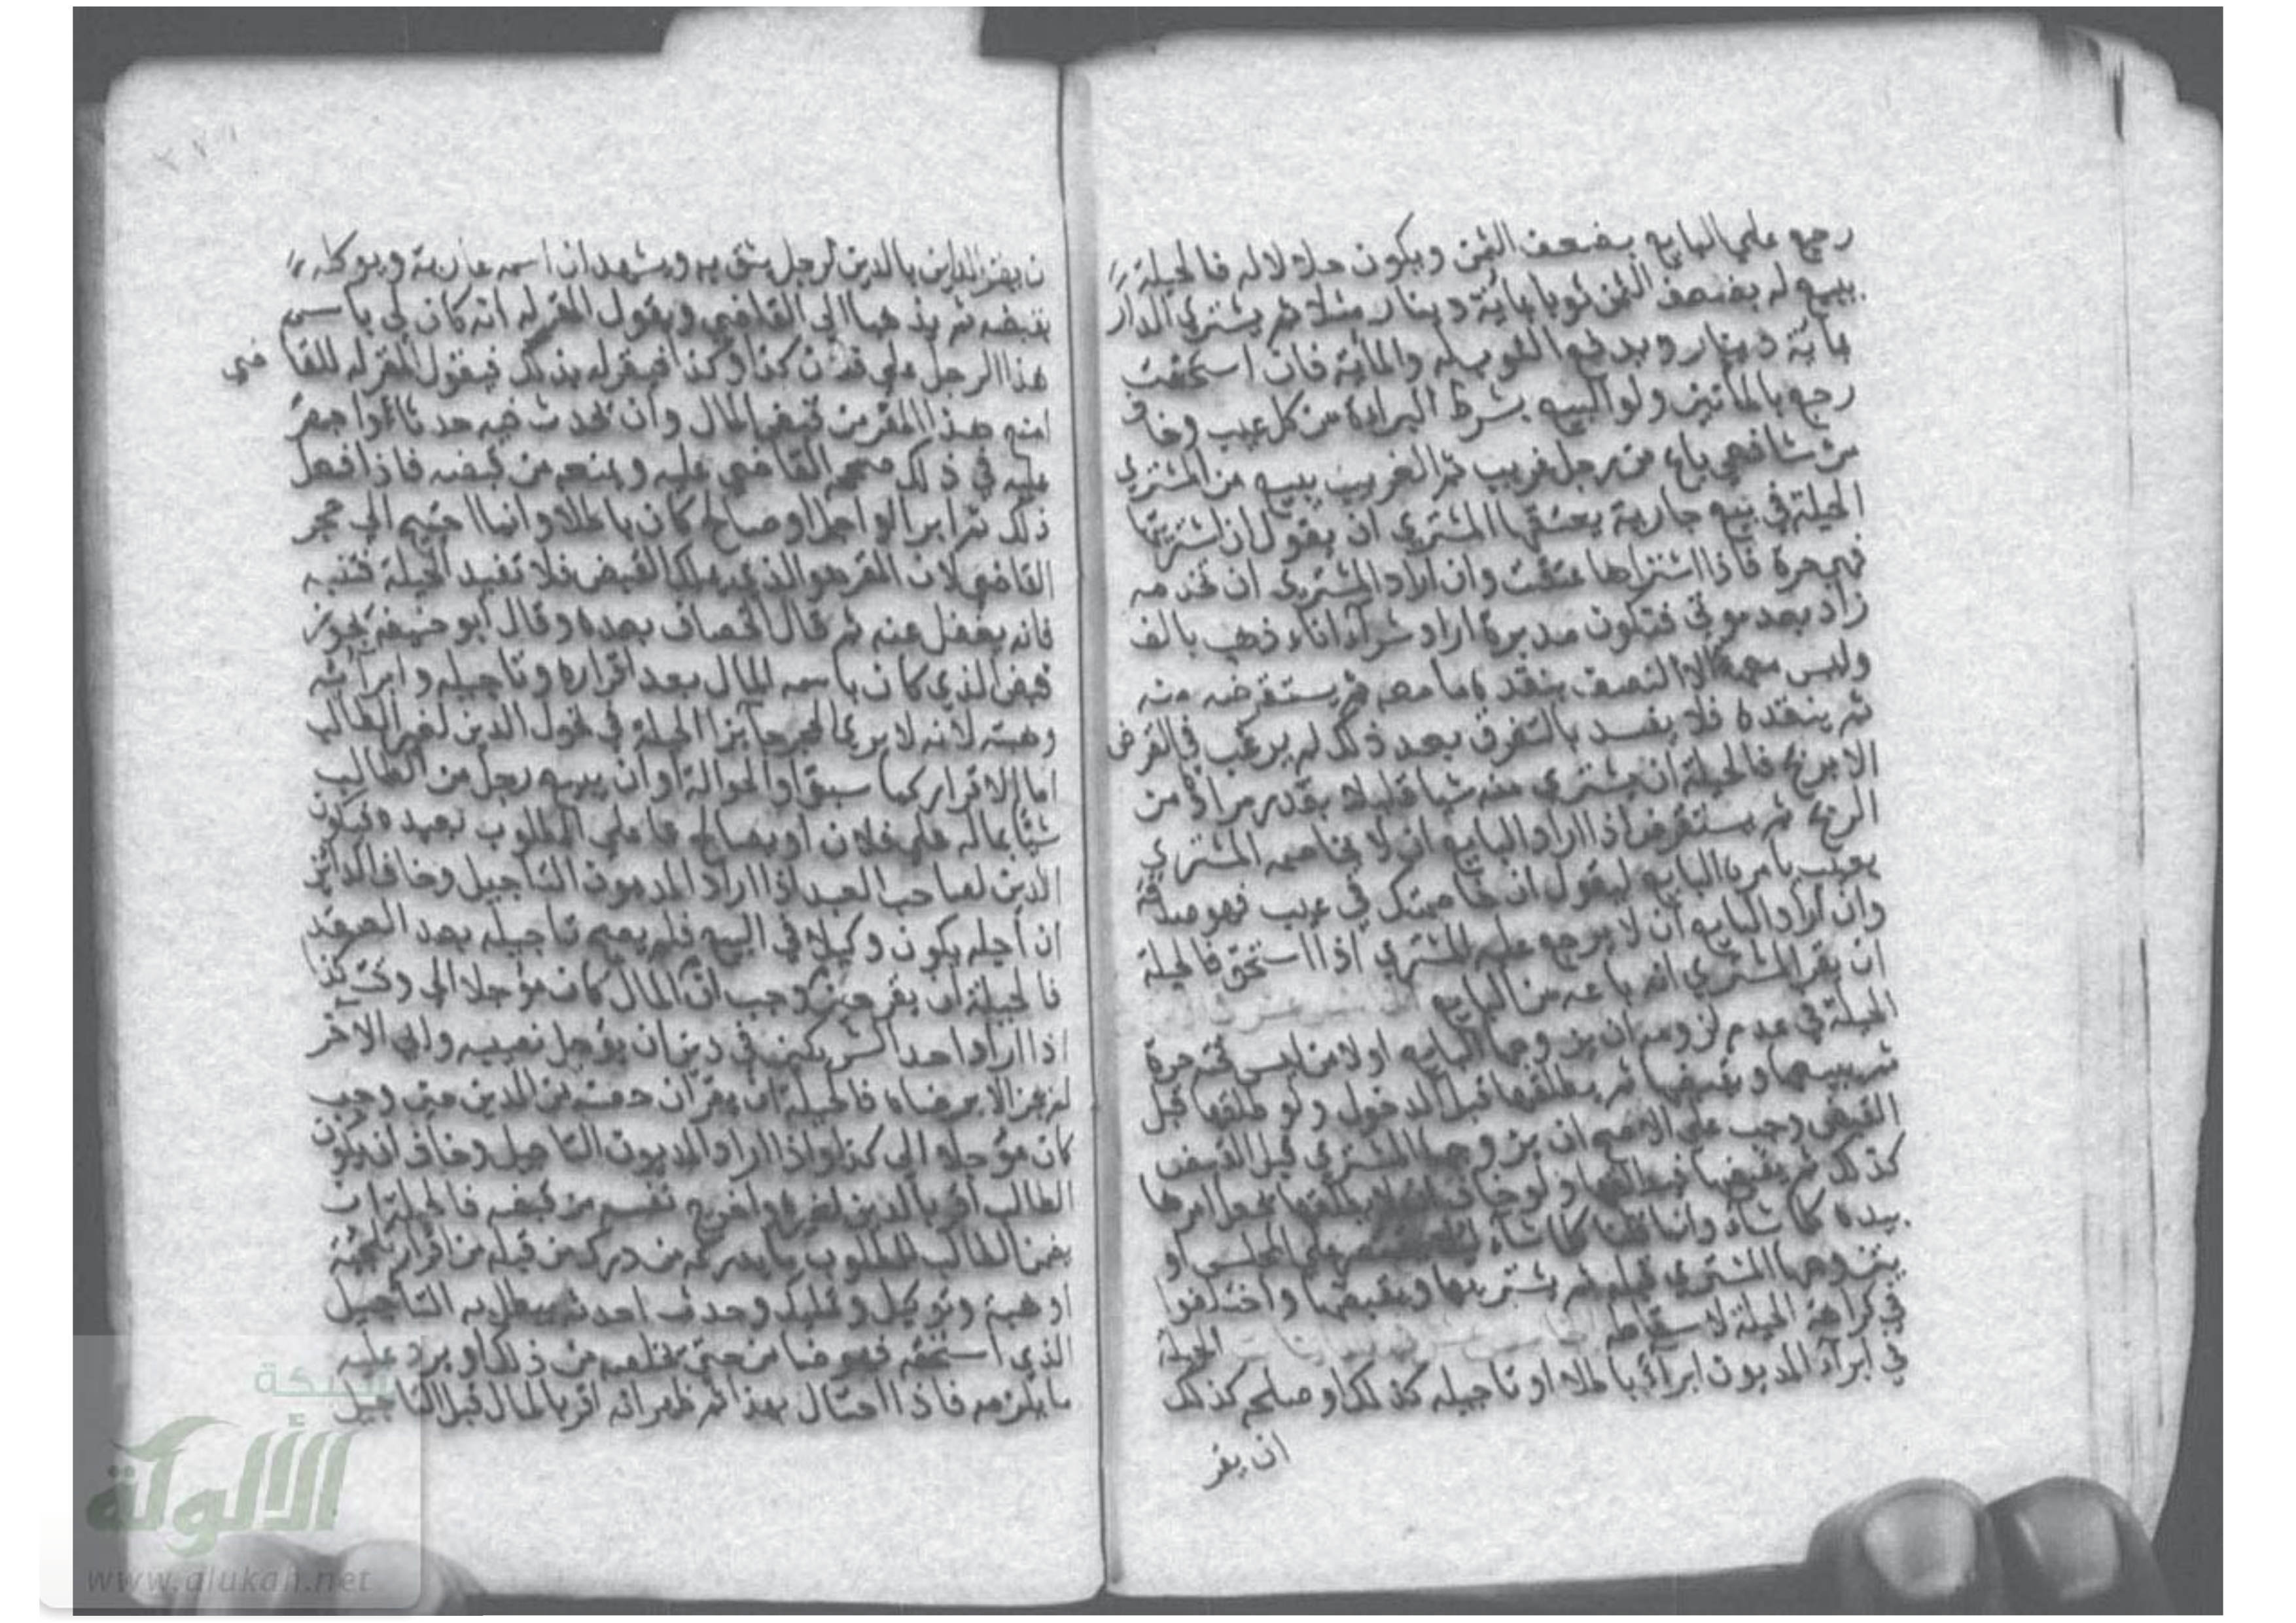 رجع علي البايع بضعف الثمن ويكون حلالا له فالحيلة
يبيع له بضعف الثمن ثوبا بمائة دينار مثلا ثم يشتري الدار
بماية دينار ويدفع الثوب له والماية فان استحقت
رجع بالمأتين ولو البيع بشرط البراءة من كل عيب وخاف
من شافعي باع من رجل غريب ثم الغريب يبيع من المشتري
الحيلة في بيع جارية يعتقها المشتري ان يقول ان اشتريتها
فهي حرة فاذا اشتراها عتقت وان اراد المشتري ان تخدمه
زاد بعد موتي فتكون مدبرة اراد شراء اناء ذهب بالف
وليس معه الا النصف ينقد ما معه ثم يستقرضه منه
ثم ينقده فلا يفسد بالتفرق بعد ذلك لم يرغب في القرض
الا بربح فالحيلة ان يشتري منه شيا قليلا بقدر مراده من
الربح ثم يستقرض اذا اراد البايع ان لا يخاصمه المشتري
بعيب يامره البايع ليقول ان خاصمتك في عيب فهو صدقة
وان اراد البايع ان لا يرجع عليه المشتري اذا استحق فالحيلة
ان يقر المشتري انه باعه من البايع
الحيلة في عدم لزومه ان يزوجها البايع اولا من ليس تحته حرة
ثم يبيعها ويقبضها ثم يطلقها قبل الدخول ولو طلقها قبل
القبض وجب علي الاصح ان يزوجها المشتري قبل القبض
كذلك ثم يقبضها فيطلقها ولو خاف ان لا يطلقها يجعل امرها
بيده كلما شاء وانما قلنا كلما شاء علي المجلس او
يتزوجها المشتري قبله ثم يشتريها ويقبضها واختلفوا
في كراهة الحيلة لاسقاطه الحيلة
في ابراء المديون ابراء باطلا او تاجيله كذلك او صلحه كذلك
ان يقر
ن يقر الداين بالدين لرجل يثق به ويشهد ان اسمه عارية ويوكله
بقبضه ثم يذهبا الي القاضي ويقول المقر له انه كان لي باسم
هذا الرجل علي فلان كذا وكذا فيقر له بذلك فيقول المقر له للقا ضي
امنع هذا المقر من قبض المال وان يحدث فيه حدثا او احجر
عليه في ذلك فيحجر القاضي عليه ويمنعه من قبضه فاذا فعل
ذلك ثم ابرا او اجل او صالح كان باطلا وانما احتيج الي حجر
القاضي لان المقر هو الذي يملك القبض فلا تفيد الحيلة فتنبه
فانه يغفل عنه ثم قال الخصاف بعده وقال ابو حنيفة يجوز
قبض الذي كان باسمه المال بعد اقراره وتاجيله وابرائه
وهبته لانه لا يري الحجر جايزا الحيلة في تحول الدين لغير الطالب
اما الاقرار كما سبق او الحوالة او ان يبيع رجل من الطالب
شيئا بماله علي فلان او يصالح عما علي المطلوب بعبده فيكون
الدين لصاحب العبد اذا اراد المديون التاجيل وخاف الداين
ان اجله يكون وكيلا في البيع فلم يصح تاجيله بعد العقد
فالحيلة ان يقر حين وجب ان المال كان مؤجلا الي وقت كذا
اذا اراد احد الشريكين في دين ان يؤجل نصيبه وابي الآخر
لم يجز الا برضاه فالحيلة ان يقر ان حصته من الدين حين وجب
كان مؤجلا الي كذا واذا اراد المديون التاجيل وخاف ان يكون
الطالب اقر بالدين لغيره واخرج نفسه من قبضه فالحيلة ان
يضمن الطالب للمطلوب ما يدركه من درك من قبله من اقرار تلجئة
او هبة وتوكيل وتمليك وحدث احدث يبطل به التاجيل
الذي استحقه فهو ضامن حتي يخلصه من ذلك او يرد عليه
ما يلزمه فاذا احتال بهذا ثم ظهر انه اقر بالمال قبل التاجيل
شبكة
الألوكة
www.alukah.net